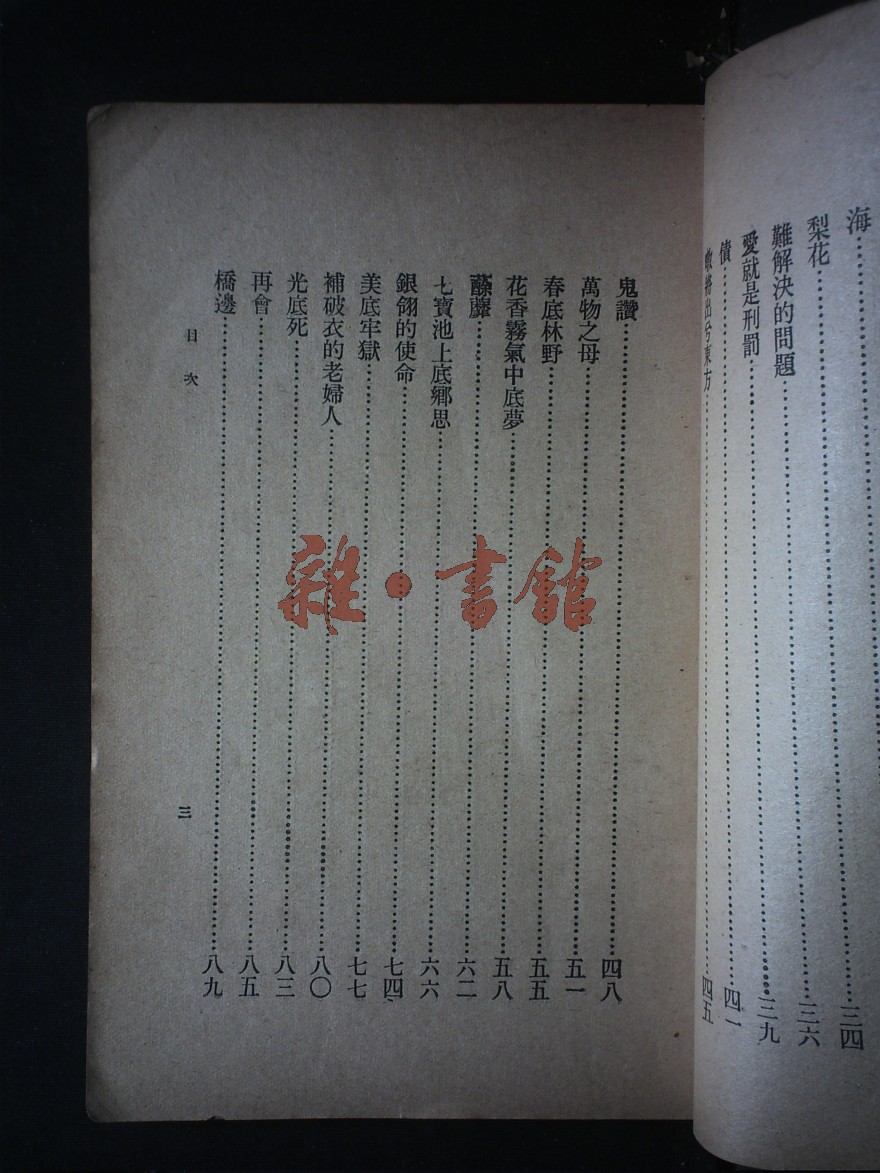 海…………三四
梨花…………三六
難解決的問題…………三九
愛就是刑罰…………四一
債…………四五
暾將出兮東方
鬼讚…………四八
萬物之母…………五一
春底林野…………五五
花香霧氣中底夢…………五八
荼蘼…………六二
七寶池上底鄉思…………六六
銀翎的使命…………七四
美底牢獄…………七七
補破衣的老婦人…………八〇
光底死…………八三
再會…………八五
橋邊…………八九
目次
三
雜·書館